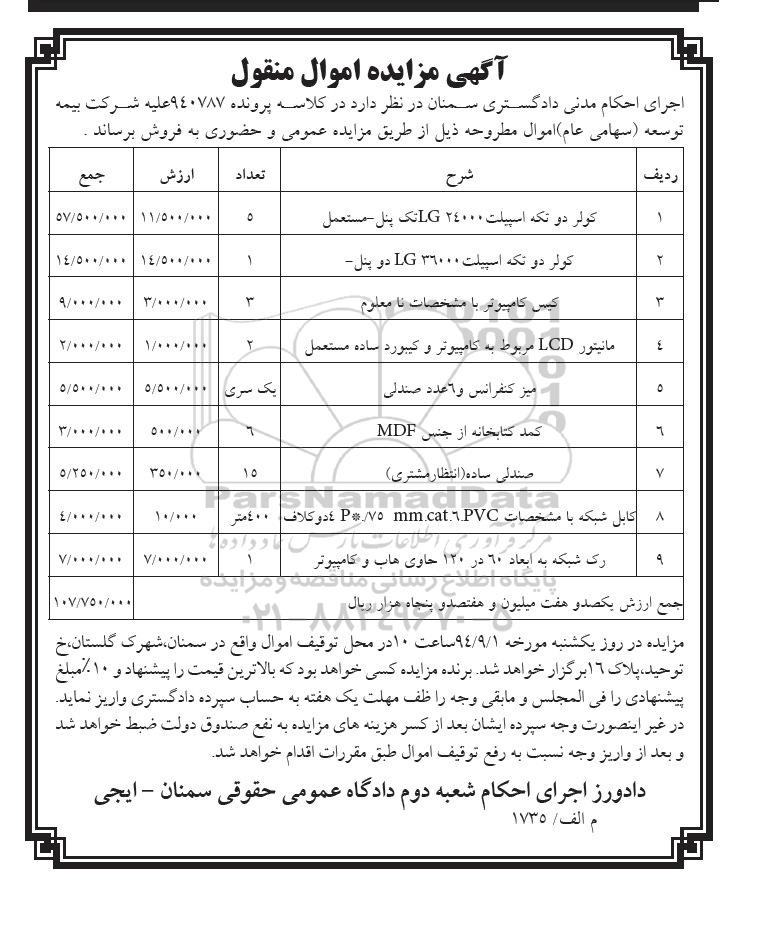 آگهی مزایده اموال منقول
اجرای احکام مدنی دادگستری سمنان در نظر دارد در کلاسه پرونده ۹٤۰۷۸۷علیه شرکت بیمه
توسعه (سهامی عام)اموال مطروحه ذیل از طریق مزایده عمومی و حضوری به فروش برساند .
ردیف شرح تعداد ارزش جمع
۱ کولر دو تکه اسپیلت۲٤۰۰۰ LGتک پنل-مستعمل ۵ ۱۱/۵۰۰/۰۰۰ ۵۷/۵۰۰/۰۰۰
۲ کولر دو تکه اسپیلت۳٦۰۰۰ LG دو پنل- ۱ ۱٤/۵۰۰/۰۰۰ ۱٤/۵۰۰/۰۰۰
۳ کیس کامپیوتر با مشخصات نا معلوم ۳ ۳/۰۰۰/۰۰۰ ۹/۰۰۰/۰۰۰
٤ مانیتور LCD مربوط به کامپیوتر و کیبورد ساده مستعمل ۲ ۱/۰۰۰/۰۰۰ ۲/۰۰۰/۰۰۰
۵ میز کنفرانس و٦عدد صندلی یک سری ۵/۵۰۰/۰۰۰ ۵/۵۰۰/۰۰۰
٦ کمد کتابخانه از جنس MDF ٦ ۵۰۰/۰۰۰ ۳/۰۰۰/۰۰۰
۷ صندلی ساده(انتظارمشتری) ۱۵ ۳۵۰/۰۰۰ ۵/۲۵۰/۰۰۰
۸ کابل شبکه با مشخصات mm.cat.٦.PVC ٤ P*./۷۵دوکلاف ٤۰۰متر ۱۰/۰۰۰ ٤/۰۰۰/۰۰۰
۹ رک شبکه به ابعاد ٦۰ در ۱۲۰ حاوی هاب و کامپیوتر ۱ ۷/۰۰۰/۰۰۰ ۷/۰۰۰/۰۰۰
جمع ارزش یکصدو هفت میلیون و هفتصدو پنجاه هزار ریال ۱۰۷/۷۵۰/۰۰۰
ParsNamadData
مرکز فرآوری اطلاعات پارس نماد داده ها
پایگاه اطلاع رسانی مناقصه و مزایده
۰۲۱-۸۸۳۴۹۶۷۰-۵
مزایده در روز یکشنبه مورخه ۹٤/۹/۱ساعت ۱۰در محل توقیف اموال واقع در سمنان،شهرک گلستان،خ
توحید،پلاک ۱٦برگزار خواهد شد. برنده مزایده کسی خواهد بود که بالاترین قیمت را پیشنهاد و ۱۰٪مبلغ
پیشنهادی را فی المجلس و مابقی وجه را ظف مهلت یک هفته به حساب سپرده دادگستری واریز نماید.
در غیر اینصورت وجه سپرده ایشان بعد از کسر هزینه های مزایده به نفع صندوق دولت ضبط خواهد شد
و بعد از واریز وجه نسبت به رفع توقیف اموال طبق مقررات اقدام خواهد شد.
دادورز اجرای احکام شعبه دوم دادگاه عمومی حقوقی سمنان – ایجی
م الف/ ۱۷۳۵